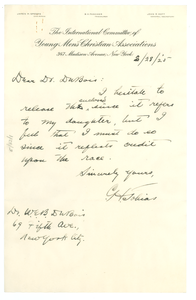 The International Committee of
Young Mens Christian Associations
347 Madison Avenue, New York
2/28/25
Dear Dr. DuBois:
I hesitate to
release the enclosed, since it refers
to my daughter, but I
feel that I must do so
since it reflects credit
upon the race.
Sincerely Yours,
C H Tobias
Dr. W E B DuBois
69 Fifth Ave.,
New York City.